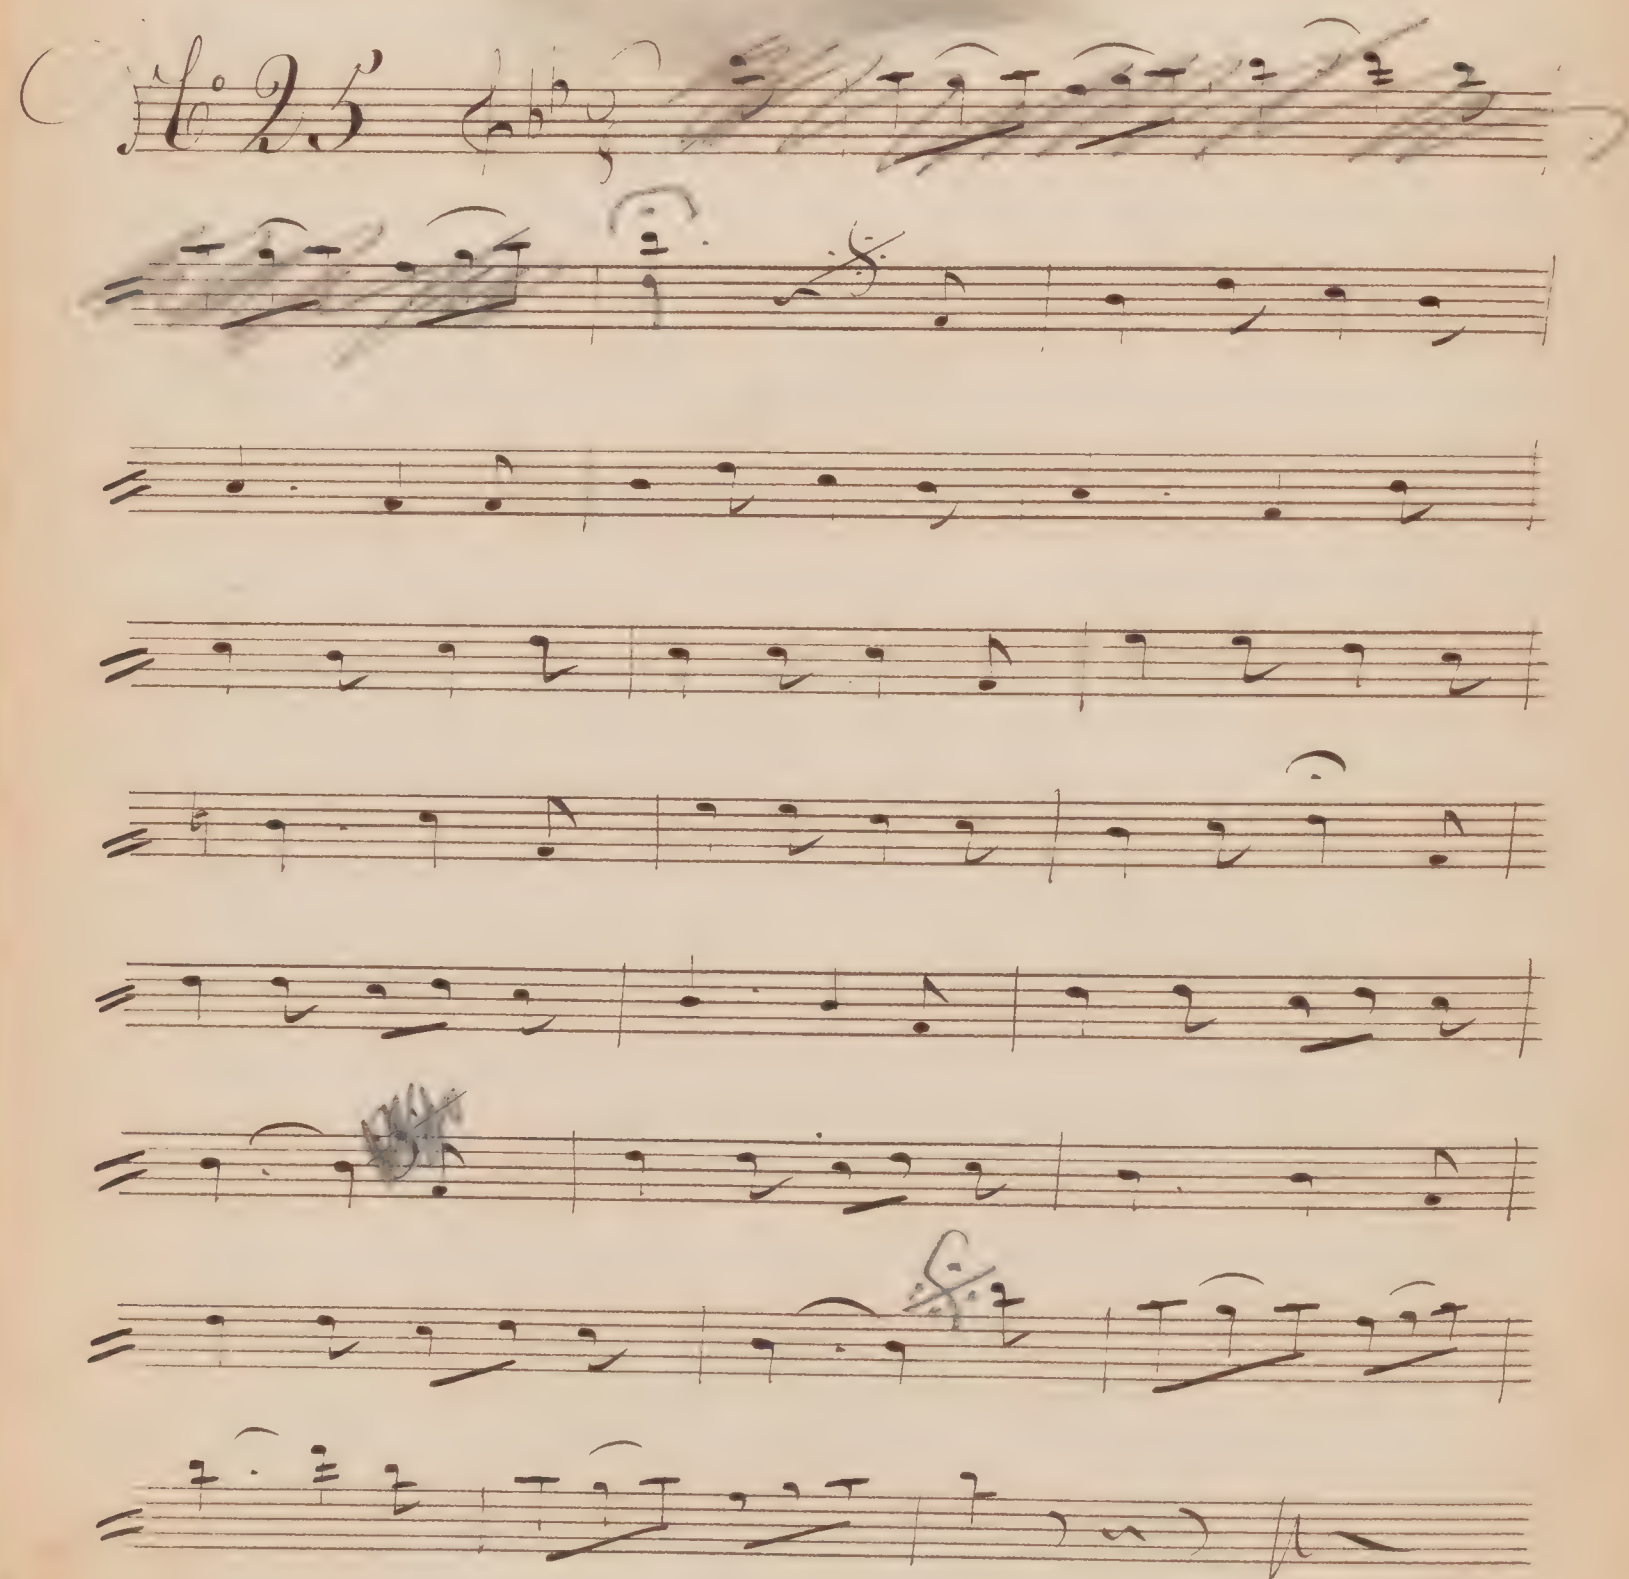 No 25